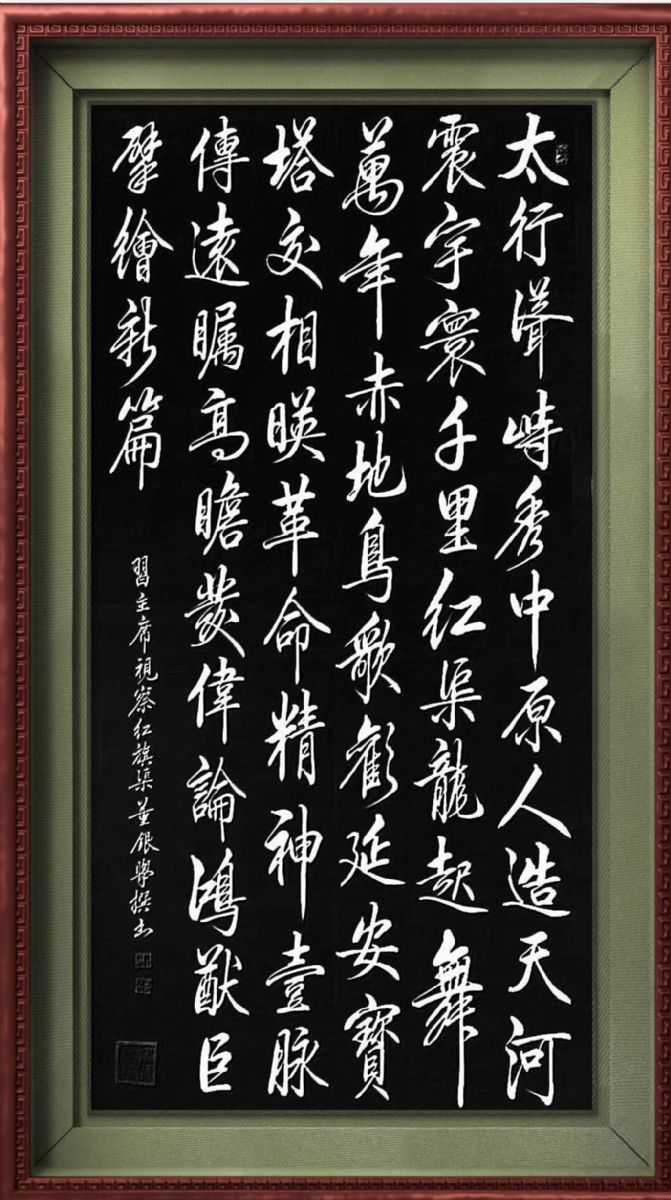 太行聳峙秀中原人造天河
震宇寰千里红渠龍起舞
萬年赤地鳥歌歡延安寶
塔交相暎革命精神壹脉
傳遠矚高瞻發偉論鴻猷巨
擘繪新篇
習主席視察红旗渠董银學撰书